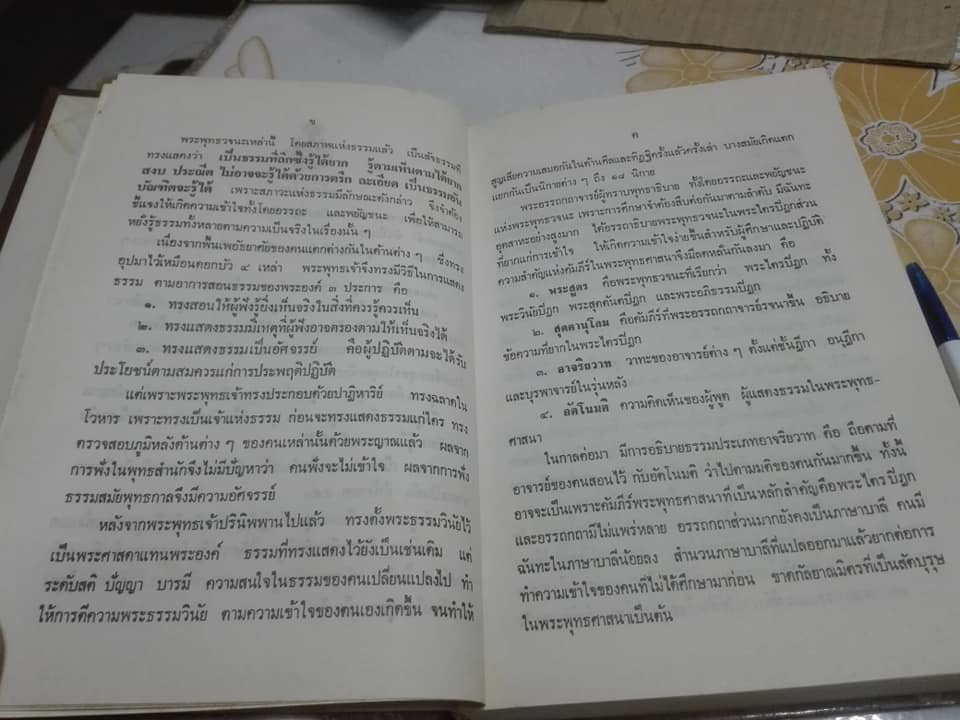 ข
พระพุทธวจนะเหล่านี้ โดยสภาพแห่งธรรมแล้ว เป็นสัจธรรมที่
ทรงแสดงว่า เป็นธรรมที่ลึกซึ้งรู้ได้ยาก รู้ตามเห็นตามได้ยาก
สงบ ประณีต ไม่อาจจะรู้ได้ด้วยการตรึก ละเอียด เป็นธรรมอัน
บัณฑิตจะรู้ได้ เพราะสภาวะแห่งธรรมมีลักษณะดังกล่าว จึงจำต้อง
ชี้แจงให้เกิดความเข้าใจทั้งโดยอรรถะ และพยัญชนะ เพื่อให้สามารถ
หยั่งรู้ธรรมทั้งหลายตามความเป็นจริงในเรื่องนั้น ๆ
เนื่องจากพื้นเพอัธยาศัยของคนแตกต่างกันในด้านต่าง ๆ ซึ่งทรง
อุปมาไว้เหมือนดอกบัว ๔ เหล่า พระพุทธเจ้าจึงทรงมีวิธีในการแสดง
ธรรม ตามอาการสอนธรรมของพระองค์ ๓ ประการ คือ
๑. ทรงสอนให้ผู้ฟังรู้ยิ่งเห็นจริงในสิ่งที่ควรรู้ควรเห็น
๒. ทรงแสดงธรรมมีเหตุที่ผู้ฟังอาจตรองตามให้เห็นจริงได้
๓. ทรงแสดงธรรมเป็นอัศจรรย์ คือผู้ปฏิบัติตามจะได้รับ
ประโยชน์ตามสมควรแก่การประพฤติปฏิบัติ
แต่เพราะพระพุทธเจ้าทรงประกอบด้วยปาฏิหาริย์ ทรงฉลาดใน
โวหาร เพราะทรงเป็นเจ้าแห่งธรรม ก่อนจะทรงแสดงธรรมแก่ใคร ทรง
ตรวจสอบภูมิหลังด้านต่าง ๆ ของคนเหล่านั้นด้วยพระญาณแล้ว ผลจาก
การฟังในพุทธสำนักจึงไม่มีปัญหาว่า คนฟังจะไม่เข้าใจ ผลจากการฟัง
ธรรมสมัยพุทธกาลจึงมีความอัศจรรย์
หลังจากพระพุทธเจ้าปรินิพพานไปแล้ว ทรงตั้งพระธรรมวินัยไว้
เป็นพระศาสดาแทนพระองค์ ธรรมที่ทรงแสดงไว้ยังเป็นเช่นเดิม แต่
ระดับสติ ปัญญา บารมี ความสนใจในธรรมของคนเปลี่ยนแปลงไป ทำ
ให้การตีความพระธรรมวินัย ตามความเข้าใจของตนเองเกิดขึ้น จนทำให้
ค
สูญเสียความเสมอกันในด้านศีลและทิฏฐิครั้งแล้วครั้งเล่า บางสมัยเกิดแตก
แยกกันเป็นนิกายต่าง ๆ ถึง ๑๘ นิกาย
พระอรรถกถาจารย์ผู้ทราบพุทธาธิบาย ทั้งโดยอรรถะและพยัญชนะ
แห่งพระพุทธวจนะ เพราะการศึกษาจำต้องสืบต่อกันมาตามลำดับ มีฉันทะ
อุตสาหะอย่างสูงมาก ได้อรรถาธิบายพระพุทธวจนะในพระไตรปิฎกส่วน
ที่ยากแก่การเข้าใจ ให้เกิดความเข้าใจง่ายขึ้นสำหรับผู้ศึกษาและปฏิบัติ
ความสำคัญแห่งคัมภีร์ในพระพุทธศาสนาจึงมีลดหลั่นกันลงมา คือ
๑. พระสูตร คือพระพุทธวจนะที่เรียกว่า พระไตรปิฎก ทั้ง
พระวินัยปิฎก พระสุตตันตปิฎก และพระอภิธรรมปิฎก
๒. สุตตานุโลม คือคัมภีร์ที่พระอรรถกถาจารย์รจนาขึ้น อธิบาย
ข้อความที่ยากในพระไตรปิฎก
๓. อาจริยวาท วาทะของอาจารย์ต่าง ๆ ตั้งแต่ชั้นฎีกา อนุฎีกา
และบุรพาจารย์ในรุ่นหลัง
๔. อัตโนมติ ความคิดเห็นของผู้พูด ผู้แสดงธรรมในพระพุทธ-
ศาสนา
ในกาลต่อมา มีการอธิบายธรรมประเภทอาจริยวาท คือ ถือตามที่
อาจารย์ของตนสอนไว้ กับอัตโนมติ ว่าไปตามมติของตนกันมากขึ้น ทั้งนี้
อาจจะเป็นเพราะคัมภีร์พระพุทธศาสนาที่เป็นหลักสำคัญคือพระไตรปิฎก
และอรรถกถามีไม่แพร่หลาย อรรถกถาส่วนมากยังคงเป็นภาษาบาลี คนมี
ฉันทะในภาษาบาลีน้อยลง สำนวนภาษาบาลีที่แปลออกมาแล้วยากต่อการ
ทำความเข้าใจของคนที่ไม่ได้ศึกษามาก่อน ขาดกัลยาณมิตรที่เป็นสัตบุรุษ
ในพระพุทธศาสนาเป็นต้น